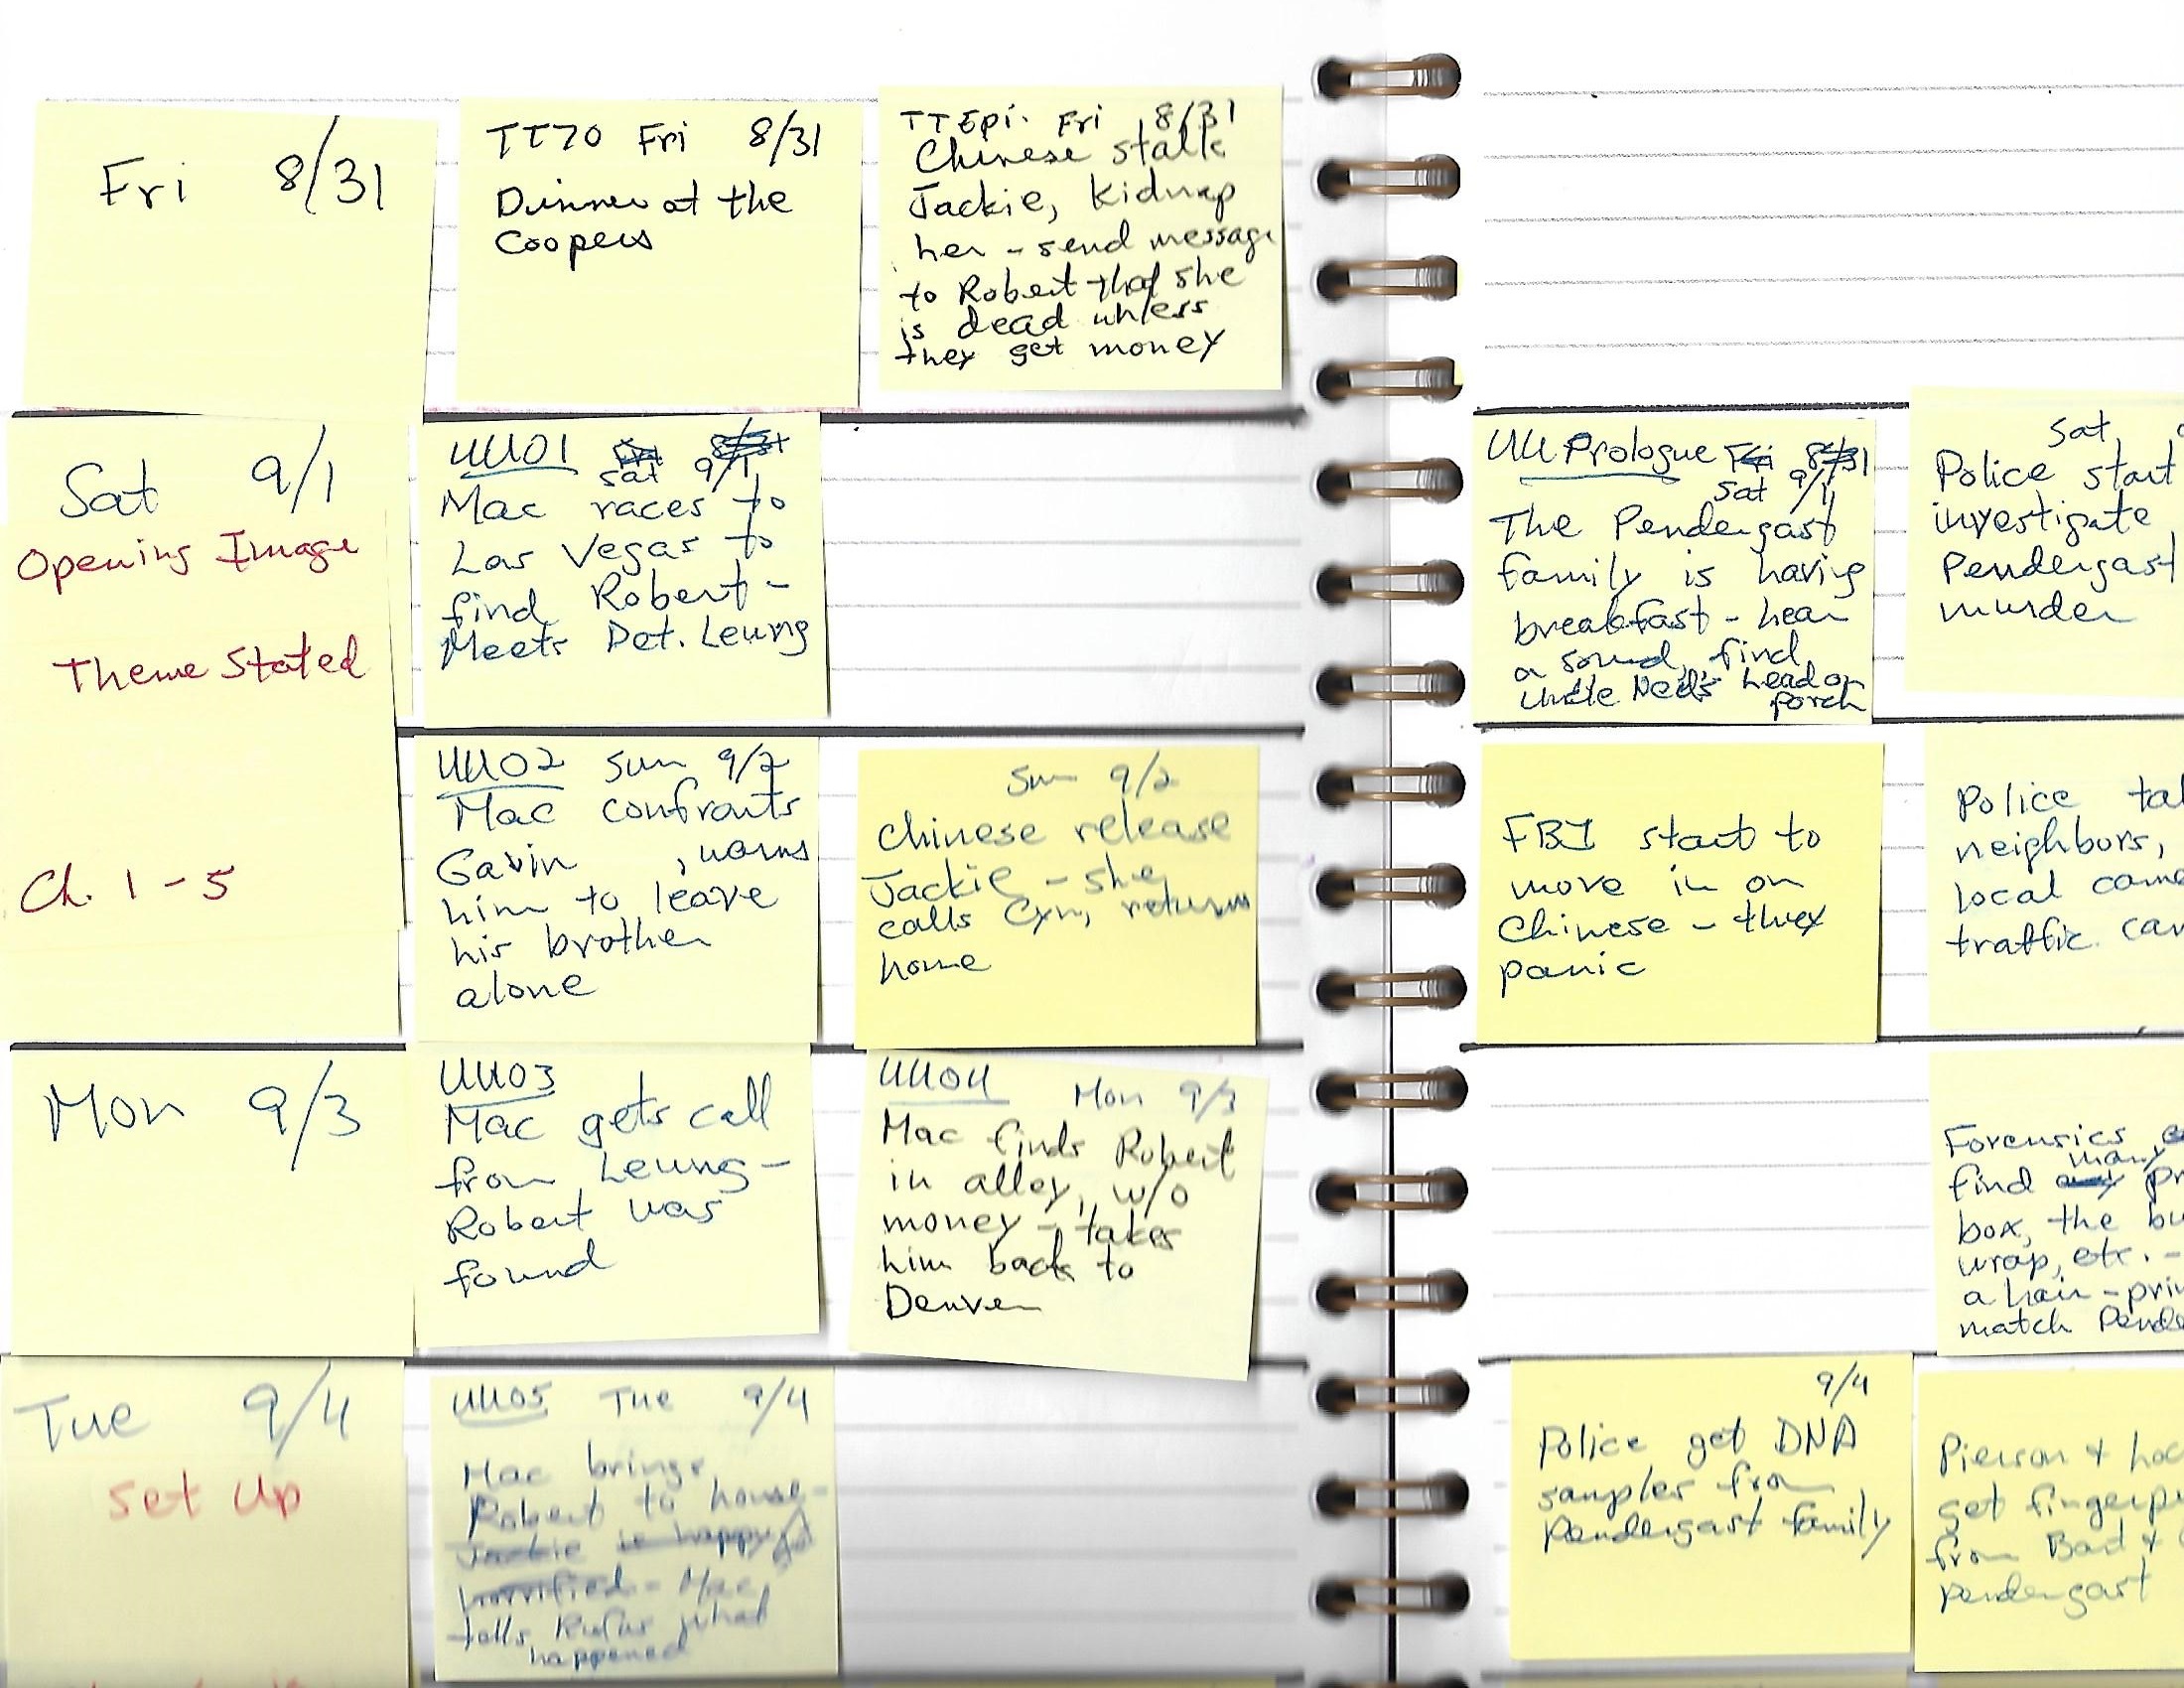 Fri 8/31
TT70 Fri 8/31
Dinner at the
Coopers
TTEpi. Fri 8/31
Chinese stalk
Jackie, kidnap
her - send message
to Robert that she
is dead unless
they get money
Sat 9/1
Opening Image
Theme Stated
Ch. 1 - 5
UU01 Fri 8/31
Sat 9/1
Mac races to
Las Vegas to
find Robert -
Meets Det. Leung
UU Prologue Fri 8/31
Sat 9/1
The Pendergast
family is having
breakfast - hear
a sound, find
Uncle Ned's head on
porch
Sat
Police start
investigate
Pendergast
murder
UU02 Sun 9/2
Mac confronts
Gavin, warns
him to leave
his brother
alone
Sun 9/2
Chinese release
Jackie - she
calls Cyn, returns
home
FBI start to
move in on
Chinese - they
panic
Police
neighbors,
local
traffic
Mon 9/3
UU03
Mac gets call
from Leung -
Robert was
found
UU04 Mon 9/3
Mac finds Robert
in alley, w/o
money - takes
him back to
Denver
Forensics
many
find any
box, the
wrap, etc. -
a hair -
match
Tue 9/4
Set Up
UU05 Tue 9/4
Mac brings
Robert to house -
Jackie is happy
horrified - Mac
tells Rufus what
happened
9/4
Police get DNA
samples from
Pendergast family
Pierson +
get
from Bart +
Pendergast